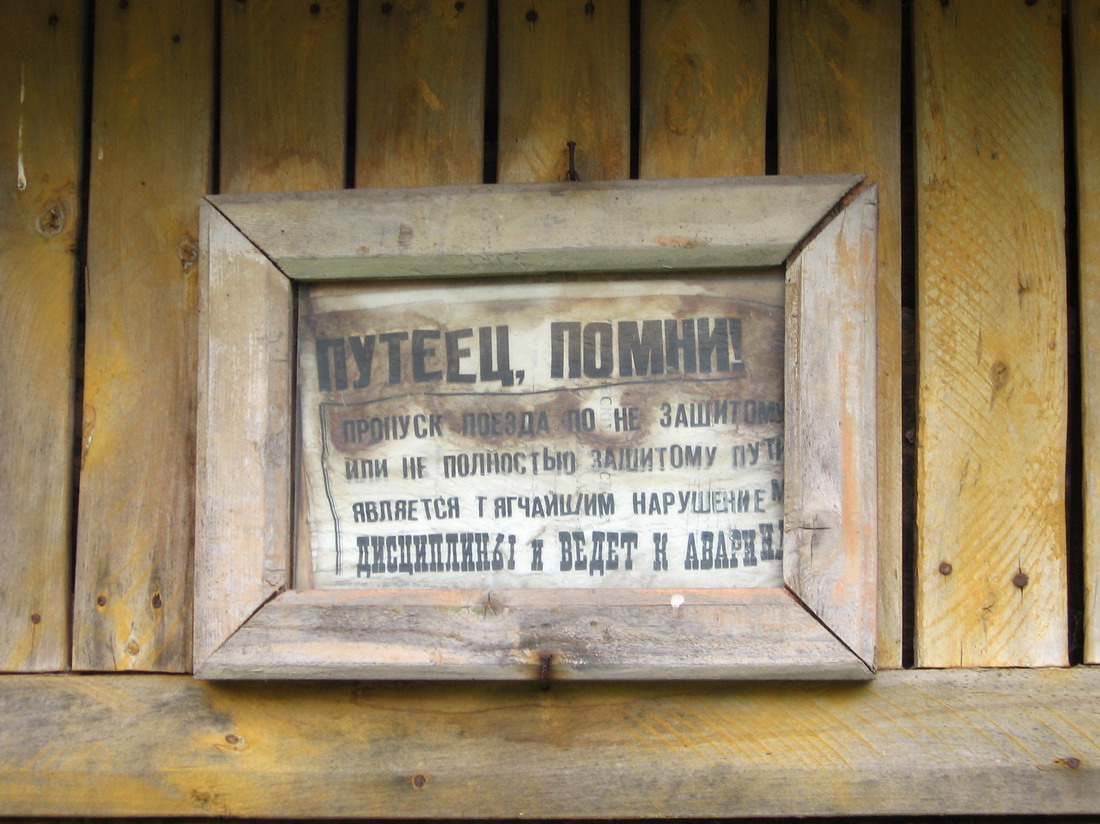 ПУТЕЕЦ, ПОМНИ!
ПРОПУСК ПОЕЗДА ПО НЕ ЗАШИТОМУ
ИЛИ НЕ ПОЛНОСТЬЮ ЗАШИТОМУ ПУТИ
ЯВЛЯЕТСЯ ТЯГЧАЙШИМ НАРУШЕНИЕМ
ДИСЦИПЛИНЫ И ВЕДЕТ К АВАРИИ